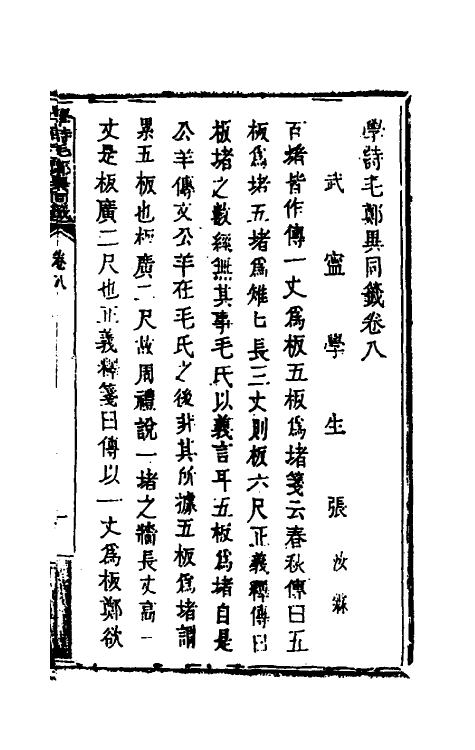 學詩毛鄭異同籤卷八
武寧學生張汝霖
百堵皆作傳一丈爲板五板爲堵箋云春秋傳曰五
板爲堵五堵爲雉雉長三丈則板六尺正義釋傳曰
板堵之數經無其事毛氏以義言耳五板爲堵自是
公羊傳文公羊在毛氏之後非其所據五板爲堵謂
累五板也板廣二尺故周禮說一堵之牆長丈高一
丈是板廣二尺也正義釋箋曰傳以一丈爲板鄭欲
學詩毛鄭異同籤
卷八
一